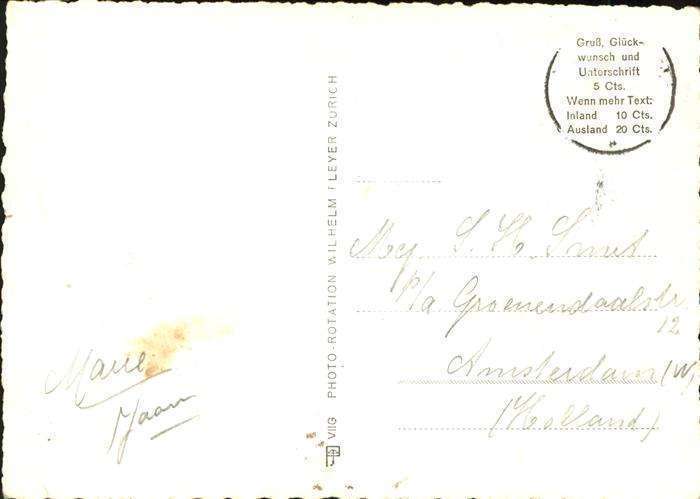 Gruß, Glück-
wunsch und
Unterschrift
5 Cts.
Wenn mehr Text:
Inland 10 Cts.
Ausland 20 Cts.
VIIG PHOTO-ROTATION WILHELM PLEYER ZÜRICH
Mej S. H. Smit
p/a Groenendaalstr
12
Amsterdam (W)
(Holland)
Marie
Jaan